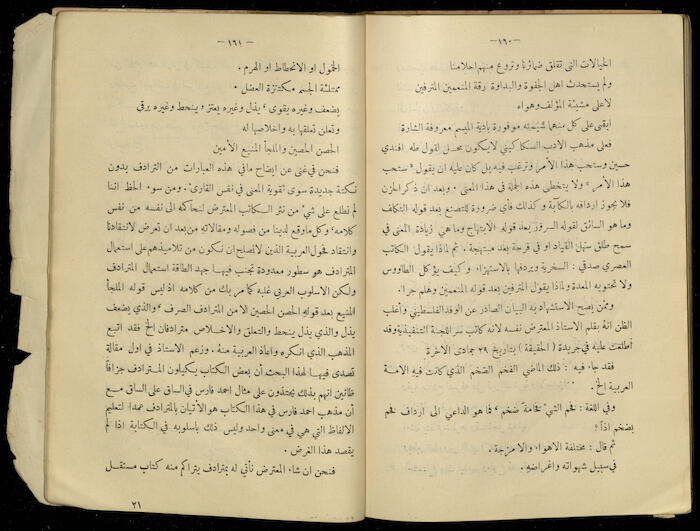 — ١٦٠ —
الخيالات التى تقلق ضمائرنا وتروع منهم احلامنا
ولم يستحدث اهل الجفوة والبداوة رقة المنعمين المترفين
لاعلى مشيئة المؤلف وهواء
ابقى على كل منهما شيمته موفورة بادية الميسم معروفة الشارة
فعلى مذهب الاديب السكاكيني لايكون محل لقول طه افندي
حسين وستحب هذا الأمر وترغب فيه بل كان عليه ان يقول «ستحب
هذا الأمر» ولا يتخطى هذه الجملة في هذا المعنى . وبعد ان ذكر الحزن
فلا يجوز اردافه بالكآبة وكذلك فأي ضرورة للتصنع بعد قوله التكلف
وما هو السائق لقوله السرور بعد قوله الابتهاج وما هي زيادة المعنى في
سمح طلق سهل القياد او في فرحة بعد مبتهجة . ثم لماذا يقول الكاتب
العصري صدقي : السخرية ويردفها بالاستهزاء وكيف يؤكل الطاووس
ولا تحتويه المعدة ولماذا يقول المترفين بعد قوله المنعمين وهلم جرا .
وممن يصح الاستشهاد به البيان الصادر عن الوفد الفلسطيني وأغلب
الظن انه بقلم الاستاذ المعترض نفسه لانه كاتب سر اللجنة التنفيذية وقد
أطلعت عليه في جريدة ( الحقيقة ) بتاريخ ٢٩ جمادى الاخرة
فقد جاء فيه : ذلك الماضي الفخم الضخم الذي كانت فيه الامة
العربية الخ .
وفي اللغة : فخم الشيُّ فخامة ضخم ، فما هو الداعي الى ارداف فخم
بضخم اذاً ؟
ثم قال : مختلفة الاهواء والامزجة .
في سبيل شهواته واغراضه .
— ١٦١ —
الخمول او الانحطاط او الهرم .
ممتلئة الجسم مكتنزة العضل .
يضعف وغيره يقوى ، يذل وغيره يعتز وينحط وغيره يرقى
وتعلق تعلقها به واخلاصها له
الحصن الحصين والملجأ المنيع الأمين
فنحن في غنى عن ايضاح مافي هذه العبارات من الترادف بدون
نكتة جديدة سوى تقوية المعنى في نفس القارئ . ومن سوء الحظ اننا
لم نطلع على شيء من نثر الكاتب المعترض لنحاكمه الى نفسه من نفس
كلامه ، وكل ماوقع لدينا من فصوله ومقالاته من بعد ان تعرض لانتقادنا
وانتقاد فحول العربية الذين لانصلح ان نكون من تلاميذهم على استعمال
المترادف هو سطور معدودة تجنب فيها جهد الطاقة استعمال المترادف
ولكن الاسلوب العربي غلبه كما مر بك من كلامه اذ ليس قوله الملجأ
المنيع بعد قوله الحصن الحصين الا من المترادف الصرف ، والذي يضعف
يذل والذي يذل ينحط والتعلق والاخلاص مترادفان الخ فقد اتبع
المذهب الذي انكره واعاذ العربية منه . وزعم الاستاذ في اول مقالة
تصدى فيها لهذا البحث أن بعض الكتاب يكيلون المترادف جزافاً
ظانين انهم بذلك يحتذون على مثال احمد فارس في الساق على الساق مع
أن مذهب احمد فارس في هذا الكتاب هو الأتيان بالمترادف عمداً لتعليم
الالفاظ التي هي في معنى واحد وليس ذلك باسلوبه في الكتابة اذا لم
يقصد هذا الغرض .
فنحن ان شاء المعترض نأتي له بمترادف يتراكم منه كتاب مستقل
٢١